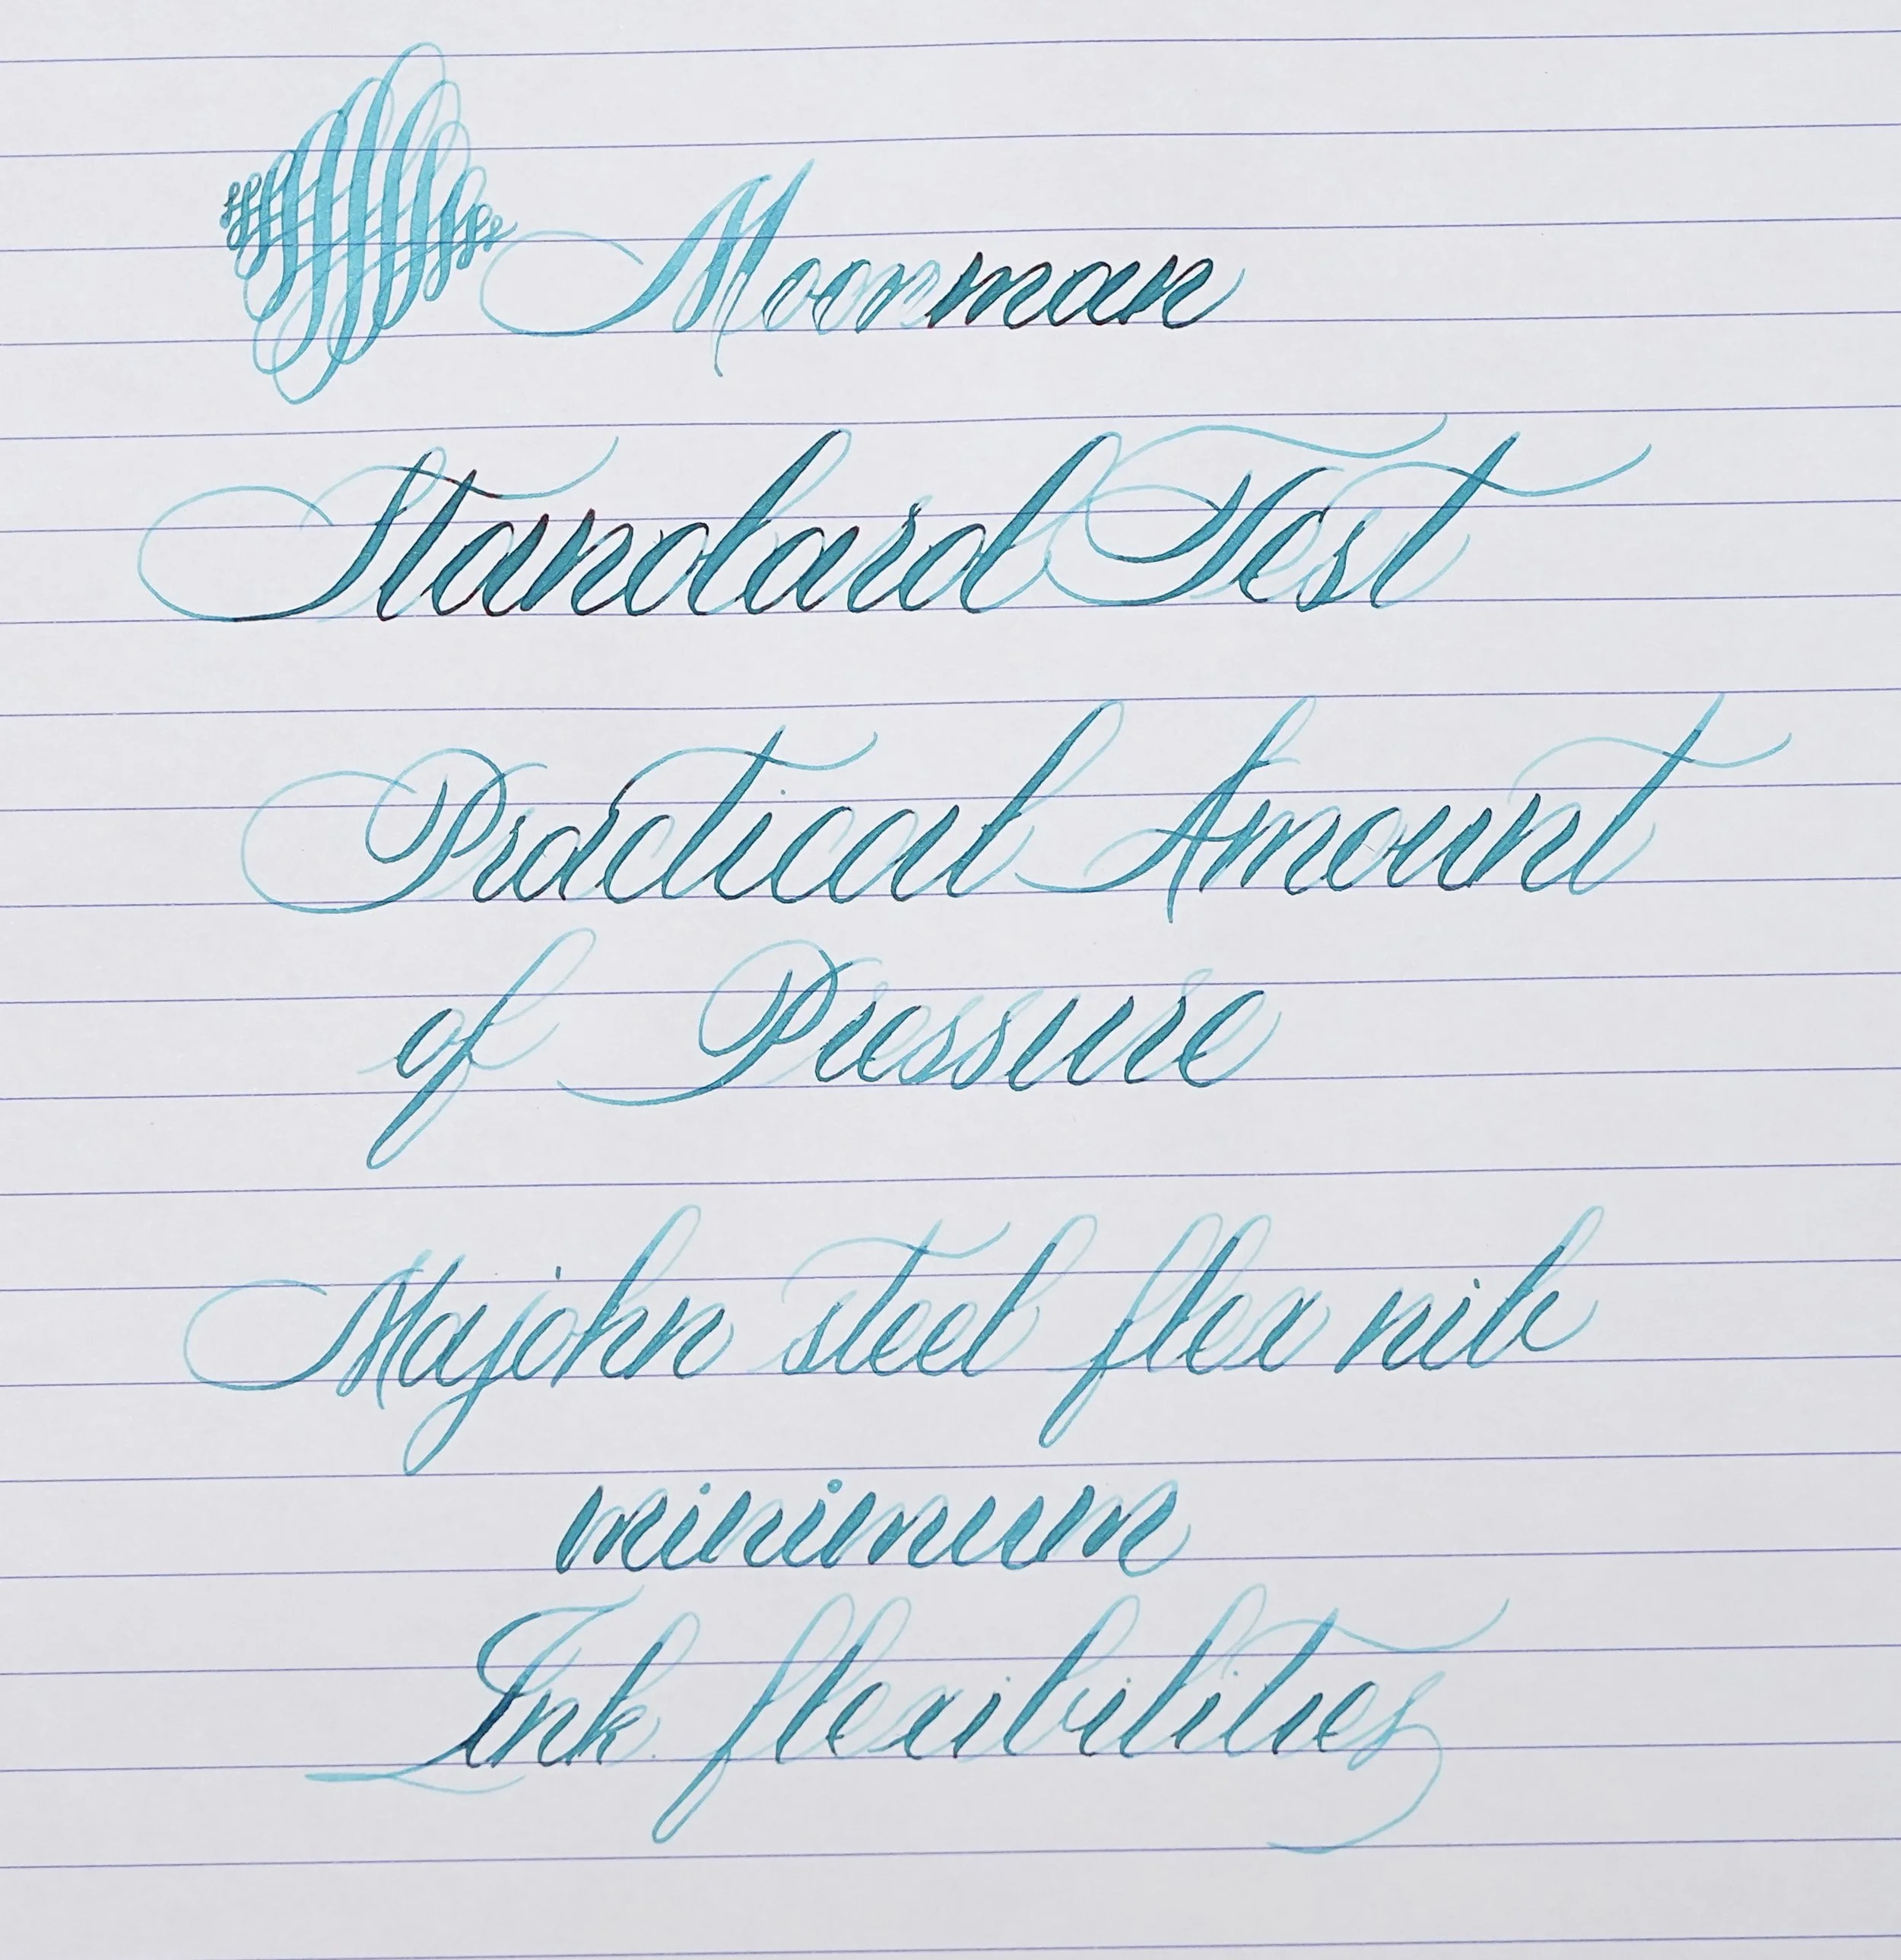 Moonman
Standard Test
Practical Amount
of Pressure
Majohn steel flex nib
minimum
Ink flexibilities